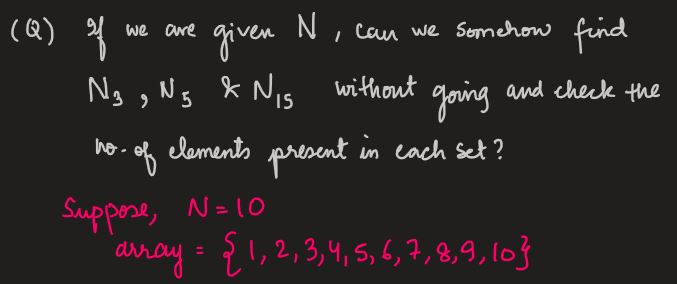 (Q) If we are given N, can we somehow find
N₃, N₅ & N₁₅ without going and check the
no. of elements present in each set?
Suppose, N = 10
array = {1, 2, 3, 4, 5, 6, 7, 8, 9, 10}